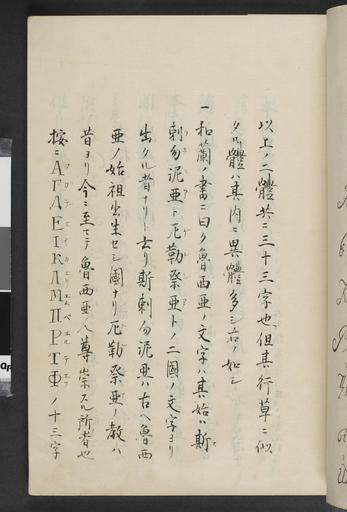 以上ノ二體共ニ三十三字也但其行草ニ似
タル體ハ其内ニ異體多シ右ノ如シ
一和蘭ノ書ニ曰ク魯西亜ノ文字ハ其始ハ斯
剌勿泥亜ト厄勒祭亜トノ二國ノ文字ヨリ
出タル者ナリト云リ斯剌勿泥亜ハ古ヘ魯西
亜ノ始祖出生セシ國ナリ厄勒祭亜ノ教ハ
昔ヨリ今ニ至テ魯西亜人尊崇スル所者也
按ニАГДЕІКЛМПРТФノ十三字